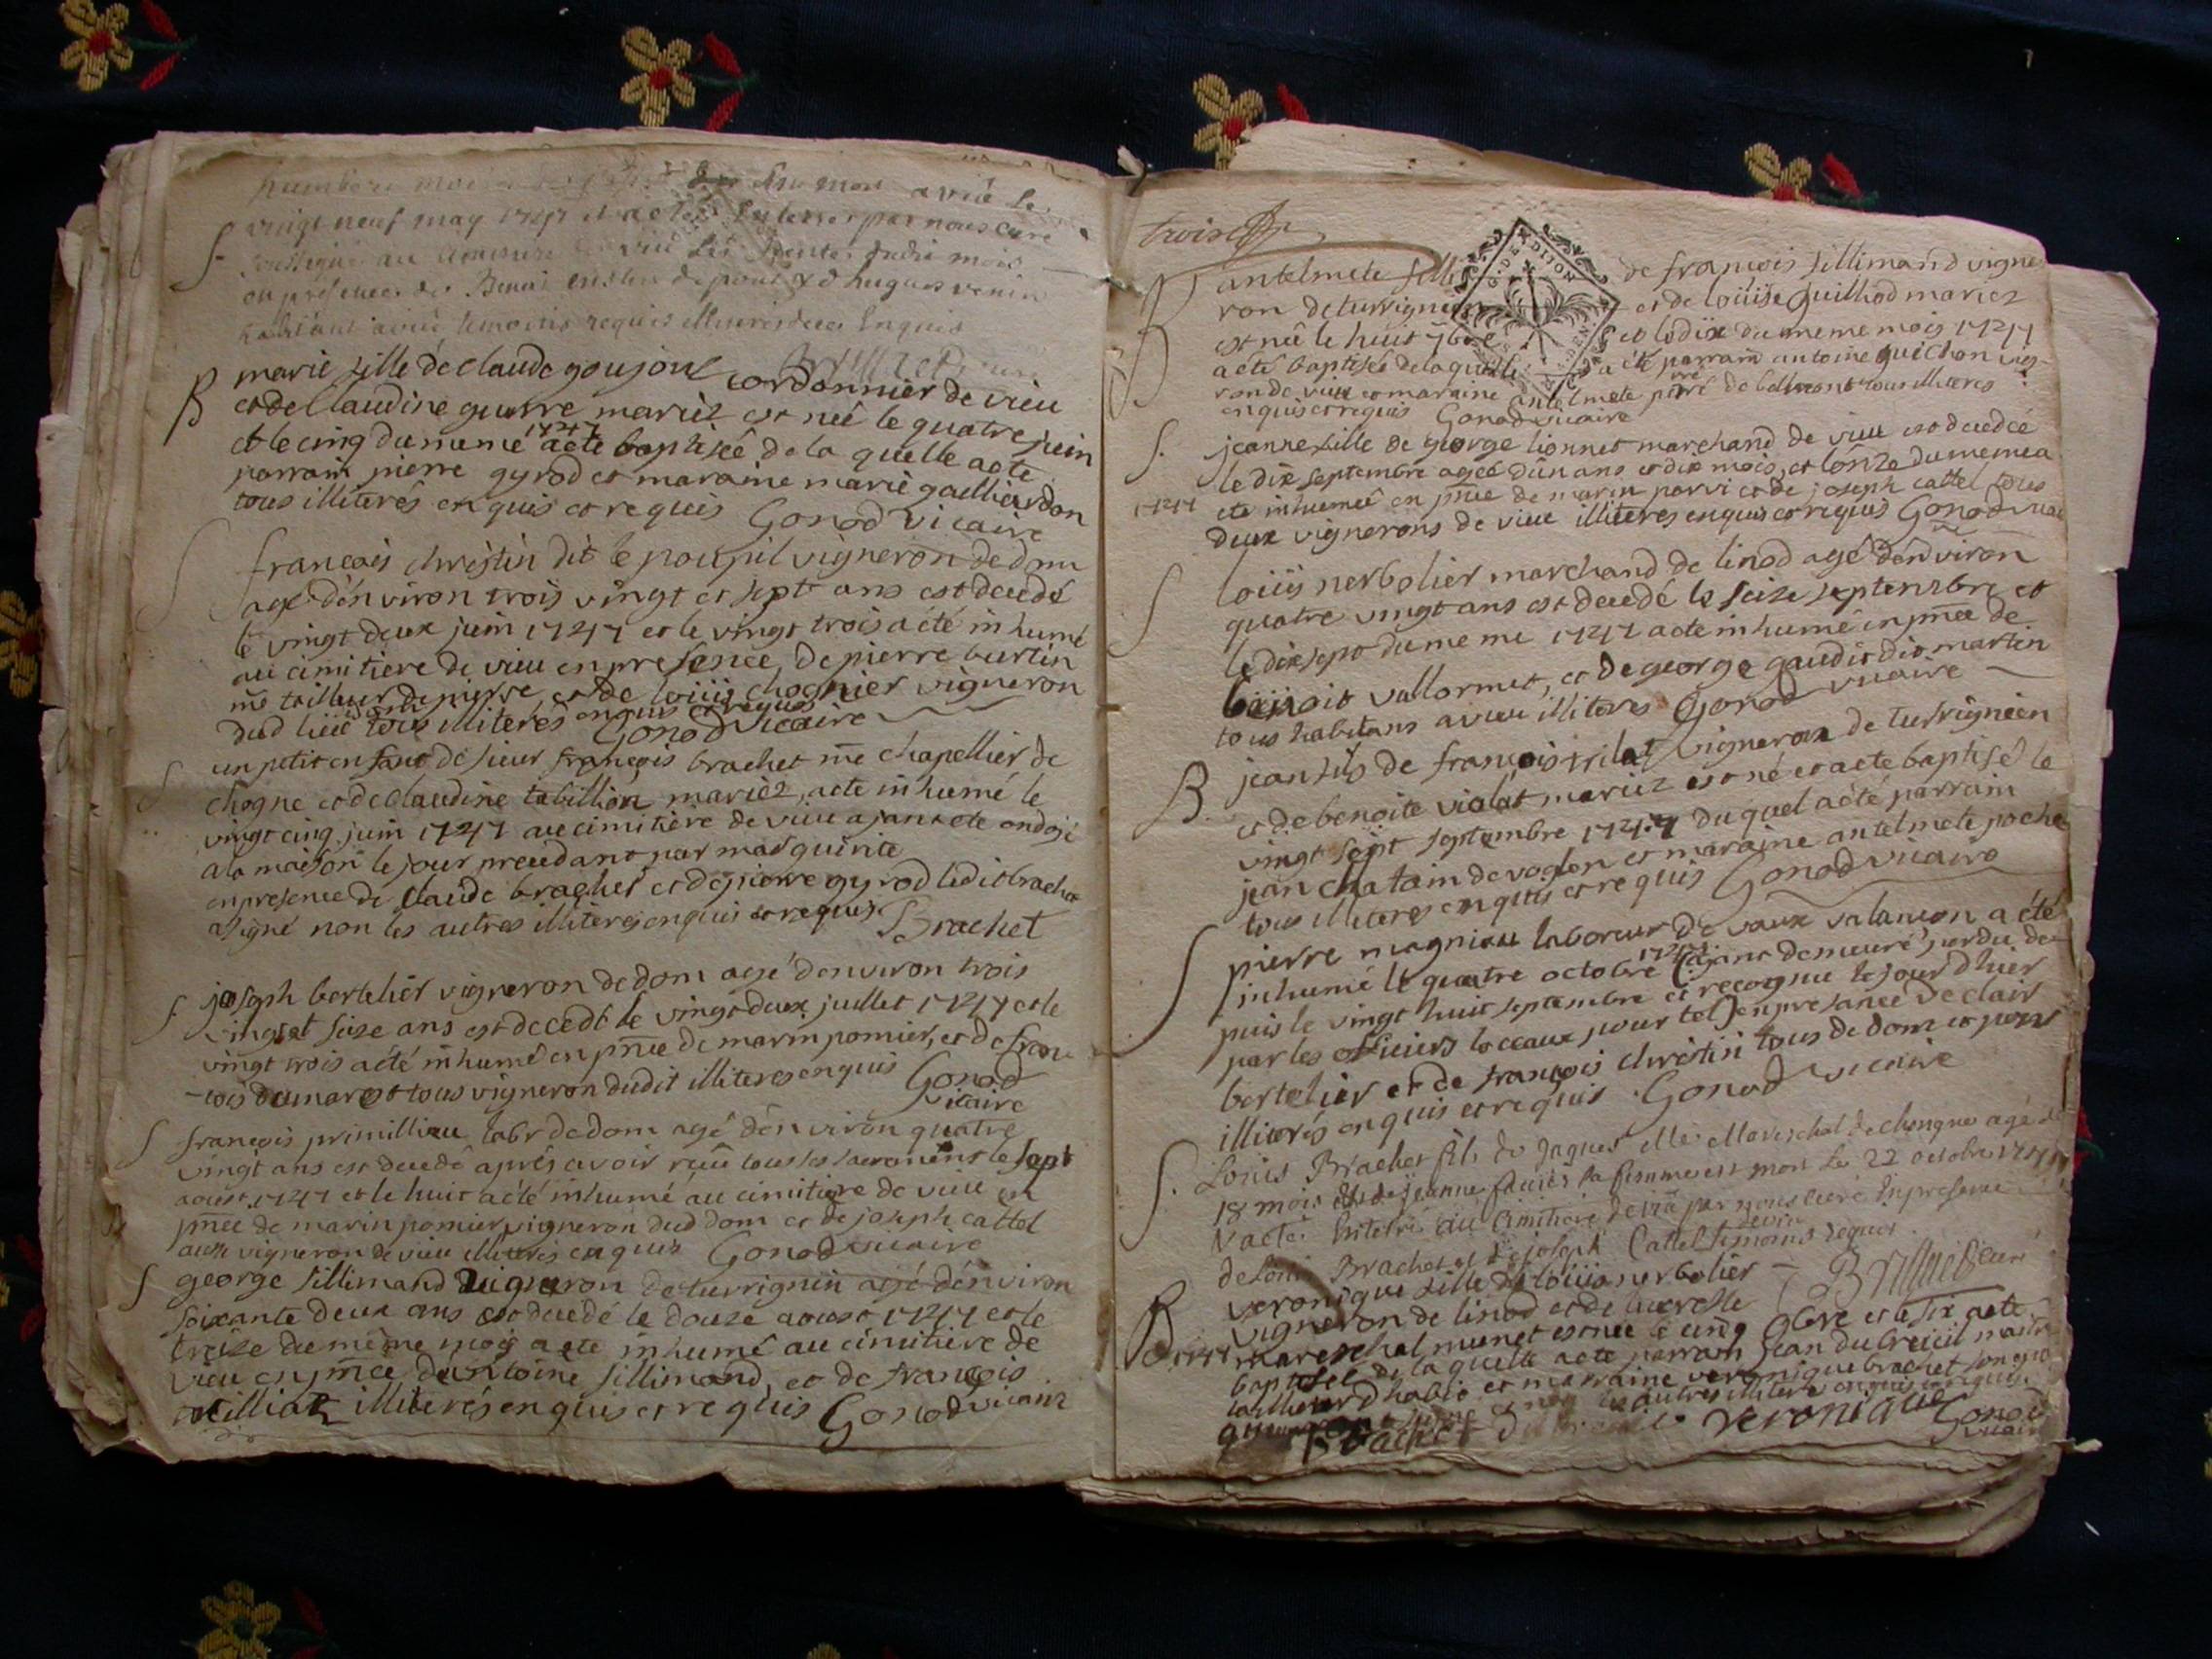 vingt neuf may 1747 et a eté enterré par nous curé
en presence de
B
marie fille de claude goujon cordonnier de vieu
et de Claudine guerre mariez est née le quatre juin
1747
et le cinq du meme a eté baptisée de la quelle a eté
parrain pierre gyrod et maraine marie gaelliardon
tous illiterés enquis et requis Gonod vicaire
S
francois christin dit le poupil vigneron de dom
agé d'environ trois vingt et sept ans est decedé
le vingt deux juin 1747 et le vingt trois a été inhumé
au cimitiere de vieu en presence de pierre burtin
me tailleur de pierre et de loüis chognier vigneron
dud lieu tous illiterés enquis et requis
Gonod vicaire
S
un petit enfant de sieur françois brachet me chapellier de
chogne et de claudine tabillion mariez, a eté inhumé le
vingt cinq juin 1747 au cimitière de vieu ajant eté ondojé
a la maison le jour precedant par
en presence de Claude brachet et de pierre gyrod ledit brachet
a signé non les autres illiteres enquis et requis Brachet
S.
joseph bertelier vigneron de dom agé d'environ trois
vingt et seise ans est decedé le vingt deux juillet 1747 et le
vingt trois a été inhumé en pñce de marin pomier, et de fran-
-cois dumarest tous vigneron dudit illiteres enquis Gonod
vicaire
S
françois primilliau labr de dom agé d'environ quatre
vingt ans est decedé aprés avoir reçu tous les sacremens le sept
aoust 1747 et le huit a été inhumé au cimitiere de vieu en
pñce de marin pomier vigneron dud dom et de joseph cattel
aussi vigneron de vieu illiterés enquis Gonod vicaire
S
george sillimand vigneron de turrignin agé d'environ
soixante deux ans est decedé le douze aoust 1747 et le
treize du même mois a eté inhumé au cimitiere de
vieu en pñce d'antoine sillimand, et de françois
illiterés enquis et requis Gonod vicaire
trois
G. DE DIJON
B
antelmete fille de francois sillimand vigne
ron de turrignin et de loüise guilliod mariez
est née le huit 7bre et le dix du meme mois 1747
a eté baptisée de laquelle a eté parrain antoine guichon vig-
ron de vieu et maraine antelmete de belmont tous illiteres
enquis et requis Gonod vicaire
S.
jeanne fille de george lionnet marchand de vieu est decedée
le dix septembre agée d'un ans et dix mois, et l'onze du meme a
1747
eté inhumée en pñce de marin parvi et de joseph cattel tous
deux vignerons de vieu illiteres enquis et requis Gonod
S
loüis nerbolier marchand de linod agé d'environ
quatre vingt ans est decedé le seise septembre et
le dix sept du meme 1747 a eté inhumé en pñce de
benoit vallormet, et de george gaudet dit martin
tous habitans a vieu illiteres Gonod vicaire
B
jean fils de françois vigneron de turrignin
et de benoite violat mariez est né et a eté baptisé le
vingt sept septembre 1747 du quel a été parrain
jean chatain de voglon et maraine antelmete poche
tous illiteres enquis et requis Gonod vicaire
S
pierre magniau laboreur de vaux valancon a été
1747
inhumé le quatre octobre (ajant demeuré perdu de
puis le vingt huit septembre et recognu le jour d'hier
par les officiers locaux pour tel) en presance de clair
bertelier et de françois christin tous de dom et pons
illiterés enquis et requis Gonod vicaire
S.
Louis Brachet fils de Jaques Me Mareschal de chongnes agé de
18 mois et de jeanne sa femme est mort le 22 octobre 1747
et a eté enterré au cimitiere de vieu par nous curé en presence
de vieu
de Louis Brachet et de joseph Cattel temoins requis
Brillat curé
B
veronique fille de loüis nerbolier
vigneron de linod et de lucresse
1747
mareschal munet est née le cinq 9bre et le six a eté
baptisée de la quelle a eté parrain jean dubreüil maitre
tailleur d'habit et marraine veronique brachet
les autres illiteres enquis et requis
Brachet veronique Gonod
vicaire